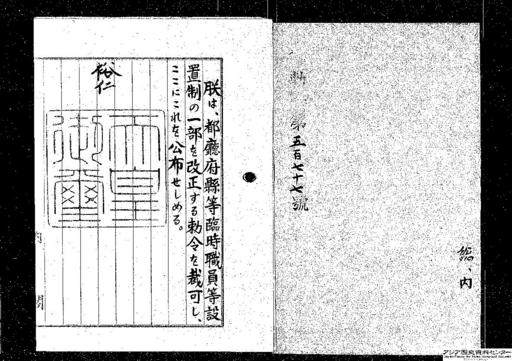 第五百七十七號
総、内
朕は、都廳府縣等臨時職員等設
置制の一部を改正する勅令を裁可し、
ここにこれを公布せしめる。
裕仁
天皇
御璽
アジア歴史資料センター